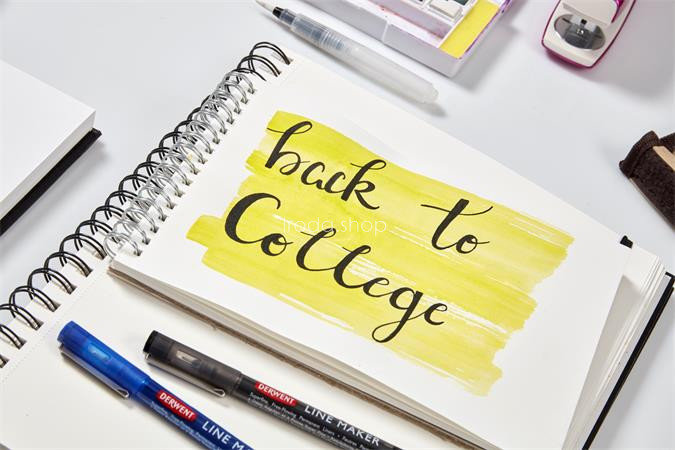 back to
College
iroda.shop
DERWENT
LINE
DERWENT
LINE MAKER